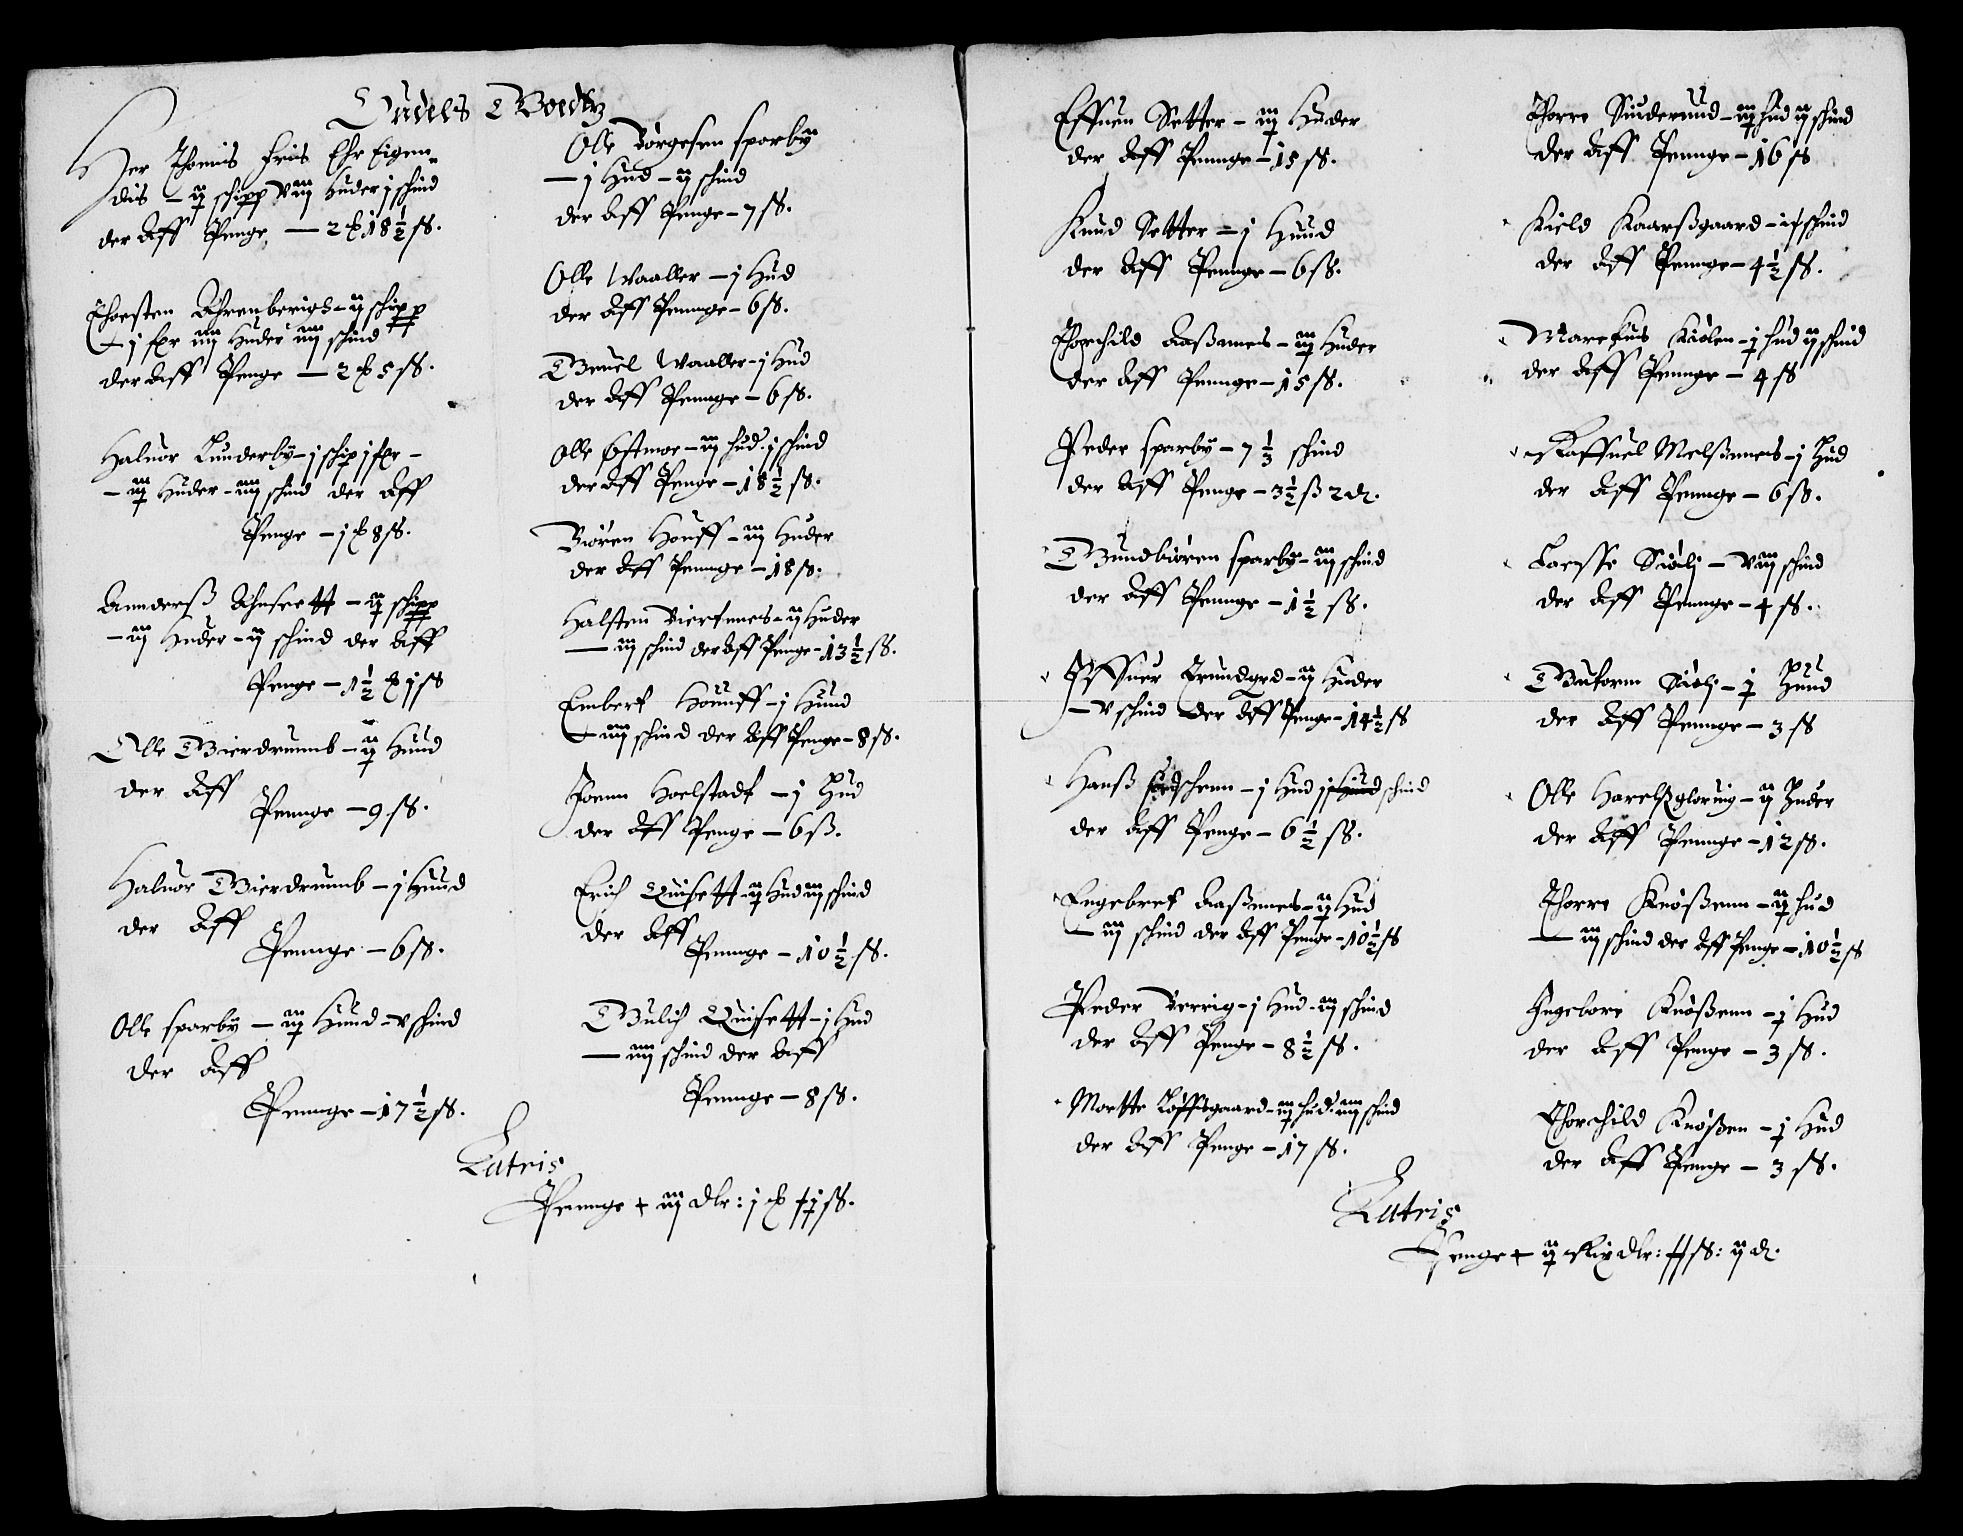 Oudels Goedtz
Her Thomis friis Ehr Eigen-
dis - ij schipp viij Huder j schind
der aff Penge - 2 £ 18½ ß.
Thorsten Ahrenberigs - ij schipp
- j fxr iiij Huder iiij schind
der aff Penge - 2 £ 5 ß.
Haluor Lunderby - j schip j fxr -
- iij Huder - iiij schind der aff
Penge - j £ 8 ß.
Annderß Ahnsett - ij schipp
- iij Huder - ij schind der aff
Penge - 1½ £ j ß
Olle Bierdrumb - ij Hund
der aff
Pennge - 9 ß.
Haluor Bierdrumb - j Huud
der aff
Pennge - 6 ß.
Olle sparby - iij Hund - v schind
der aff
Pennge - 17½ ß.
Olle Börgesen sporby
- j Hud - ij schind
der aff Penge - 7 ß.
Olle Waaller - j Hud
der aff Pennge - 6 ß.
Waaller - j Hud
der aff Pennge - 6 ß.
Olle Ostmoe - iij hud j schind
der aff Penge - 18½ ß.
Biören Houff - iij Huder
der aff Pennge - 18 ß.
Halsten Biertnnes - ij Huder
- iij schind der aff Penge - 13½ ß.
Embert Houuff - j Hund
- iiij schind der aff Penge - 8 ß.
Joenn Hoelstadt - j Hud
der aff Penge - 6 ß.
Erich Quisett - ij Hud iij schind
der aff
Pennge - 10½ ß.
Gulich Quisett - j Hud
- iiij schind der aff
Pennge - 8 ß.
Latris
Pennge + iij dlr: j £ ß.
Effuen Setter - iij Huder
der aff Pennge - 15 ß.
Knud Setter - j Huud
der aff Pennge - 6 ß.
Thorchild Aaßnnes - iij Huder
der aff Pennge - 15 ß.
Peder sparby - 7⅓ schind
der aff Penge - 3½ ß 2 d.
Gundbiören sparby - iij schind
der aff Pennge - 1½ ß.
Iffuer Grundgrd - ij Huder
- v schind der aff Penge - 14½ ß
Hanß - j Hud j schind
der aff Penge - 6½ ß.
Engebret Aaßnnes - ij Hud
- iij schind der aff Penge - 10½ ß
Peder Berrig - j Hud - iij schind
der aff Penge - 8½ ß.
Mortte Löffsgaard - iij hud iiij schind
der aff Penge - 17 ß.
Thorre Sinderuud - iij hud ij schind
der aff Pennge - 16 ß
Kield Kaarßgaard - schind
der aff Pennge - 4½ ß.
Marckus Kiölen - j hud ij schind
der aff Pennge - 4 ß
Raffuel Melßnnes - j Hud
der aff Pennge - 6 ß.
Laesse Siölj - viij schind
der aff Pennge - 4 ß.
Guttorm Siölj - j Hund
der aff Pennge - 3 ß
Olle Harelßgloruig - ij Huder
der aff Pennge - 12 ß.
Thorre Knößenn - ij hud
- iij schind der aff Penge - 10½ ß
Ingebore Knößenn - j Hud
der aff Penge - 3 ß.
Thorchild Knößen - j Hud
der aff Penge - 3 ß.
Latris
Penge + ij rixdlr: ß: ij d.